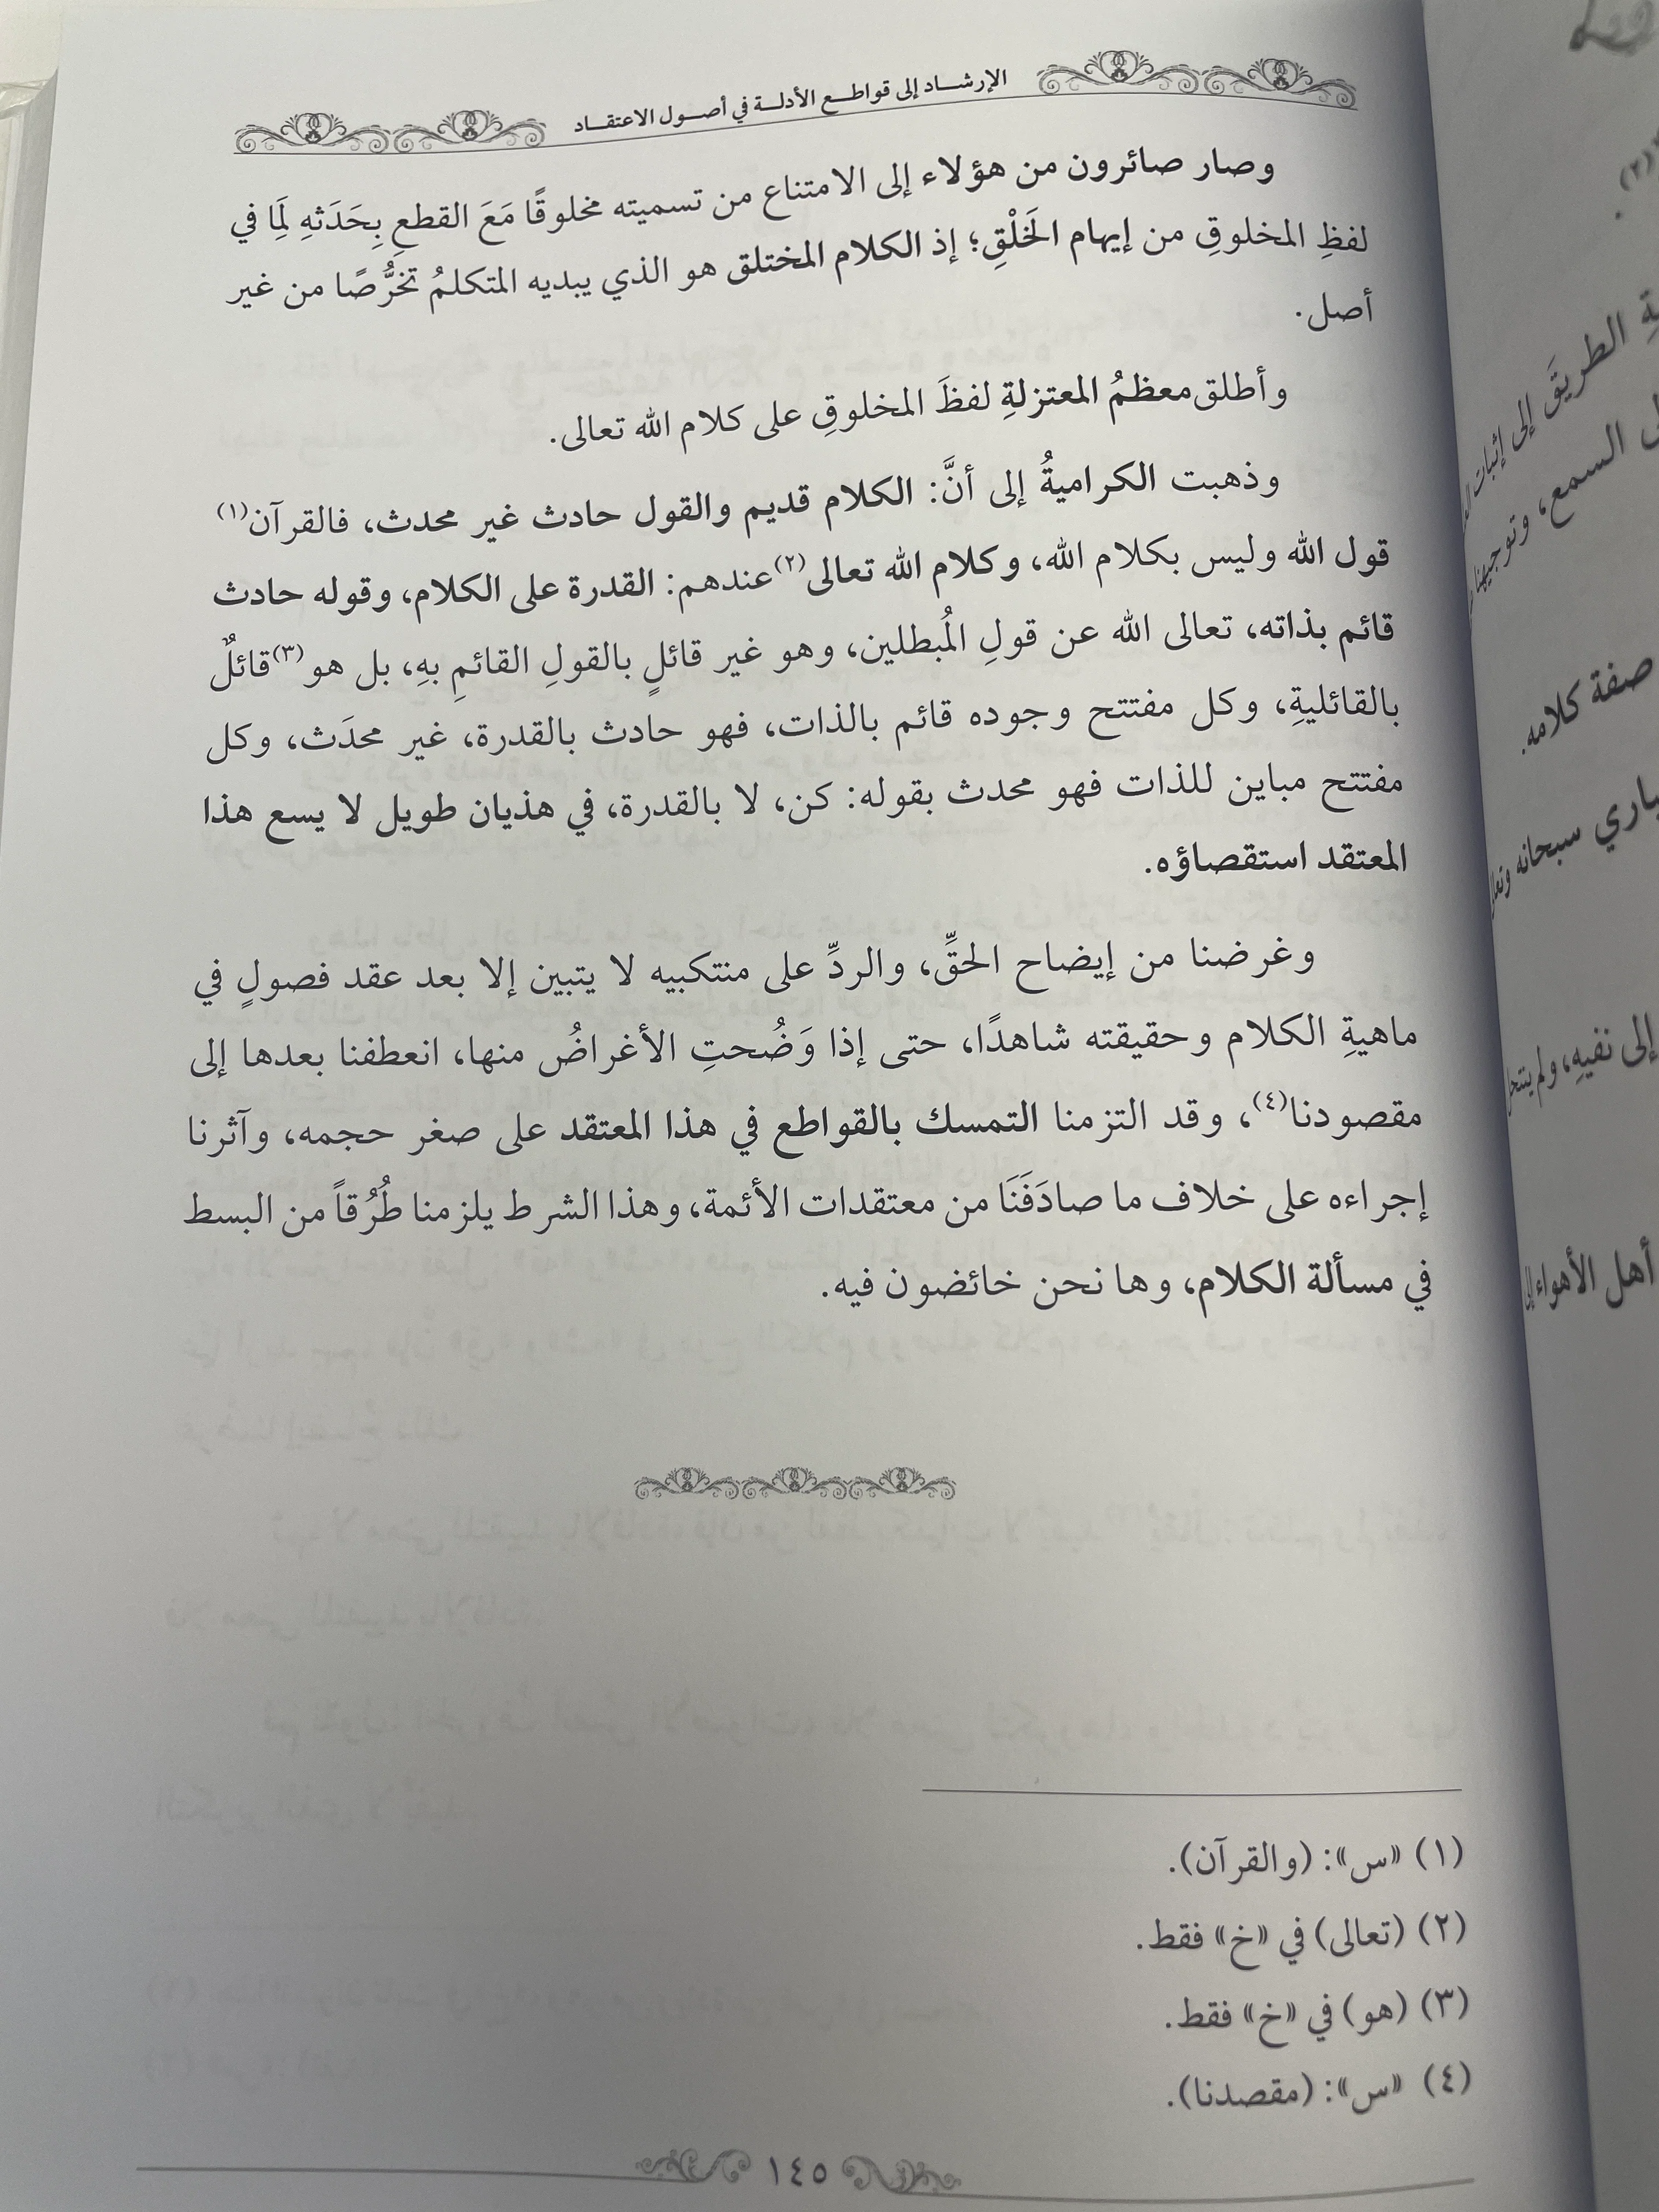 الإرشاد إلى قواطع الأدلة في أصول الاعتقاد
وصار صائرون من هؤلاء إلى الامتناع من تسميته مخلوقًا مَعَ القطعِ بِحَدَثهِ لِمَا في
لفظِ المخلوقِ من إيهام الخَلْقِ؛ إذ الكلام المختلق هو الذي يبديه المتكلمُ تخرُّصًا من غير
أصل.
وأطلق معظمُ المعتزلةِ لفظَ المخلوقِ على كلام الله تعالى.
وذهبت الكراميةُ إلى أنَّ: الكلام قديم والقول حادث غير محدث، فالقرآن(١)
قول الله وليس بكلام الله، وكلام الله تعالى(٢) عندهم: القدرة على الكلام، وقوله حادث
قائم بذاته، تعالى الله عن قولِ المُبطلين، وهو غير قائلٍ بالقولِ القائمِ بهِ، بل هو(٣) قائلٌ
بالقائليةِ، وكل مفتتح وجوده قائم بالذات، فهو حادث بالقدرة، غير محدَث، وكل
مفتتح مباين للذات فهو محدث بقوله: كن، لا بالقدرة، في هذيان طويل لا يسع هذا
المعتقد استقصاؤه.
وغرضنا من إيضاح الحقِّ، والردِّ على منتكبيه لا يتبين إلا بعد عقد فصولٍ في
ماهيةِ الكلام وحقيقته شاهدًا، حتى إذا وَضُحتِ الأغراضُ منها، انعطفنا بعدها إلى
مقصودنا(٤)، وقد التزمنا التمسك بالقواطع في هذا المعتقد على صغر حجمه، وآثرنا
إجراءه على خلاف ما صادَفَنَا من معتقدات الأئمة، وهذا الشرط يلزمنا طُرُقاً من البسط
في مسألة الكلام، وها نحن خائضون فيه.
(١) «س»: (والقرآن).
(٢) (تعالى) في «خ» فقط.
(٣) (هو) في «خ» فقط.
(٤) «س»: (مقصدنا).
١٤٥
(٢).
الطريقَ إلى إثبات
السمع، وتوجيهنا
صفة كلامه.
سبحانه
إلى نفيهِ، ولم ينتحل
أهل الأهواء